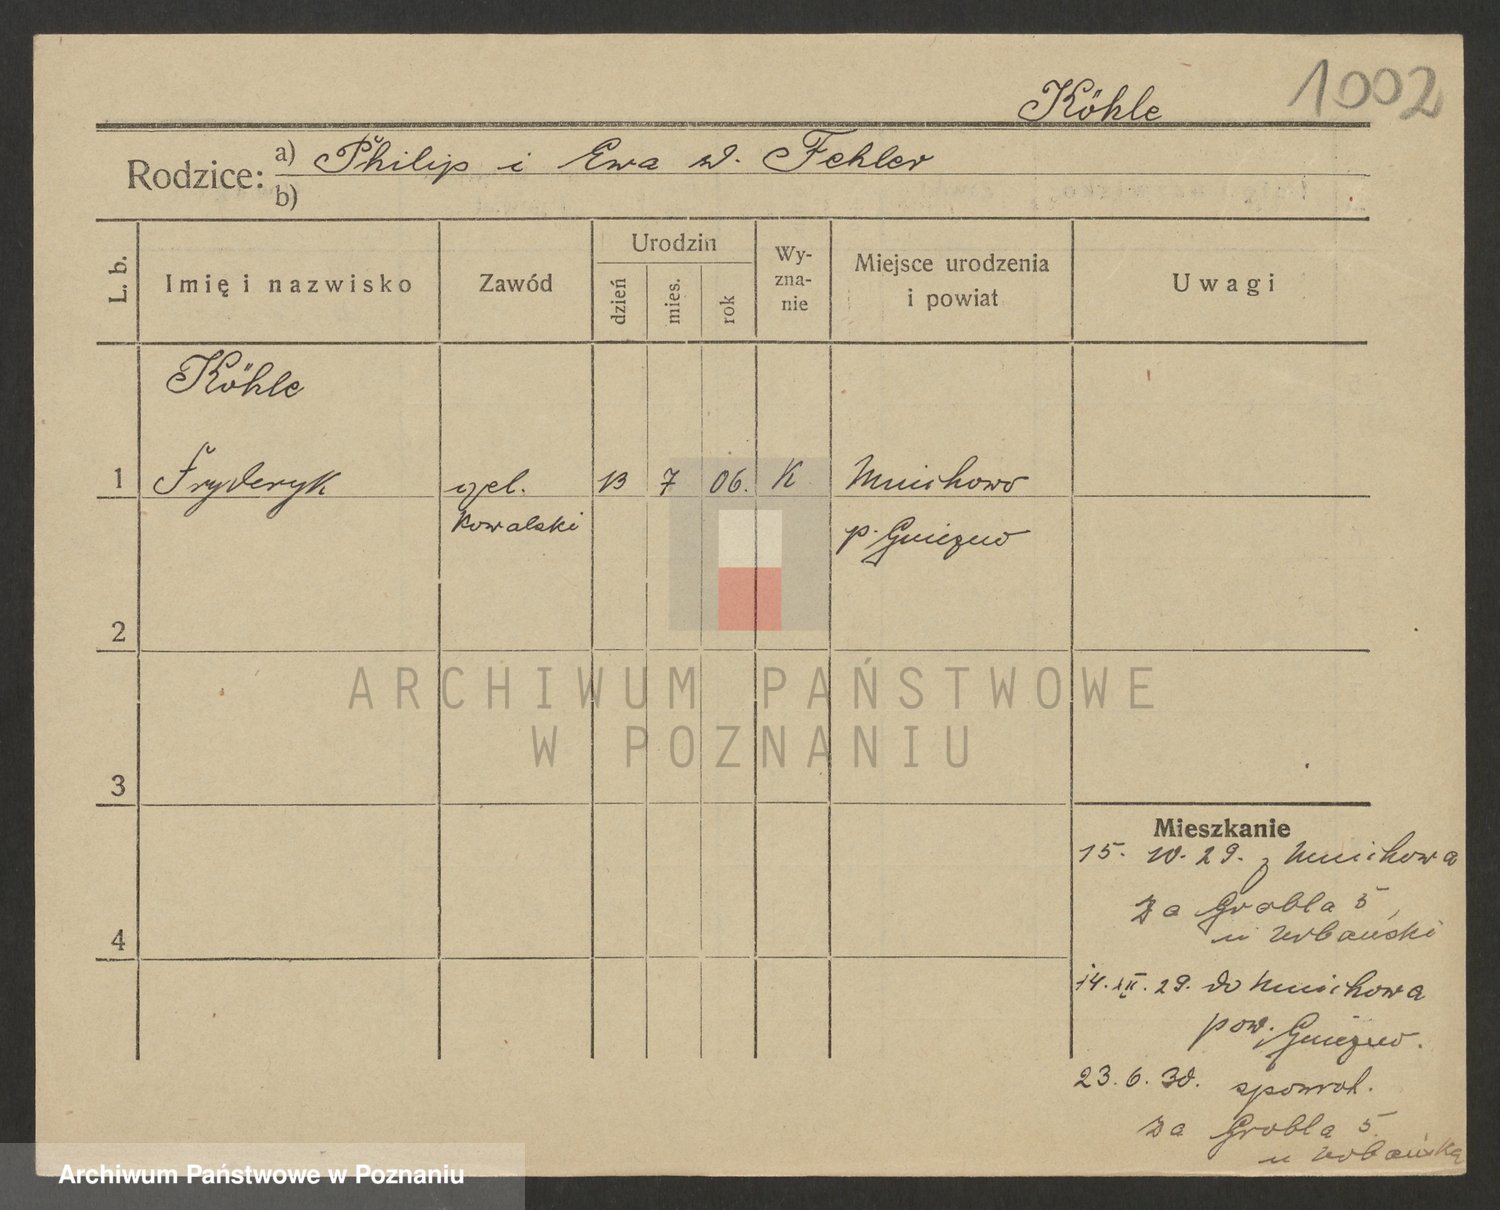 1002
Köhle
Rodzice: a) Philip i Ewa d. Fehler
b)
L. b.
Imię i nazwisko
Zawód
Urodzin
dzień
mies.
rok
Wy-
zna-
nie
Miejsce urodzenia
i powiat
Uwagi
Köhle
1 Fryderyk czel. 13 7 06. K Mnichowo
kowalski p. Gniezno
2
3
4
Mieszkanie
15. 10. 29. z Mnichowa
Za Grobla 5,
u Urbański
14. XII. 29. do Mnichowa
pow. Gniezno.
23. 6. 30. spowrot.
Za Grobla 5
u Urbańską
ARCHIWUM PAŃSTWOWE
W POZNANIU
Archiwum Państwowe w Poznaniu